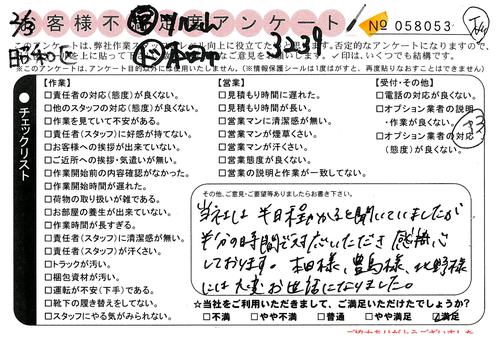 お客様不満足度アンケート
No 058053
3239
このアンケートは、弊社作業スタッフのレベル向上に役立てたく思います。否定的なアンケートになりますので、
※このアンケートは、アンケート目的以外に使用いたしません。（※情報保護シールは1度はがすと、再度貼りなおすことはできません）
チェックリスト
【作業】
□責任者の対応（態度）が良くない。
□他のスタッフの対応（態度）が良くない。
□作業を見ていて不安がある。
□責任者（スタッフ）に好感が持てない。
□お客様への挨拶が出来ていない。
□ご近所への挨拶・気遣いが無い。
□作業開始前の内容確認がなかった。
□作業開始時間が遅れた。
□荷物の取り扱いが雑である。
□お部屋の養生が出来ていない。
□作業時間が長すぎる。
□責任者（スタッフ）に清潔感が無い。
□責任者（スタッフ）が汗くさい。
□トラックが汚い。
□梱包資材が汚い。
□運転が不安（下手）である。
□靴下の履き替えをしてない。
□スタッフにやる気がみられない。
【営業】
□見積もり時間に遅れた。
□見積もり時間が長い。
□営業マンに清潔感が無い。
□営業マンが煙草くさい。
□営業マンが汗くさい。
□営業態度が良くない。
□営業の説明と作業が一致してない。
【受付・その他】
□電話の対応が良くない。
□オプション業者の説明
・作業が良くない。
□オプション業者の対応
（態度）が良くない。
その他、ご意見・ご要望等ありましたらお書き下さい。
当社は半日程かかると聞いていましたが
半分の時間で対応いただき感謝
しております。本田様、豊島様、北野様
には大変お世話になりました。
☆当社をご利用いただきまして、ご満足いただけたでしょうか？
□不満 □やや不満 □普通 □やや満足 ☑満足
ご協力ありがとうございました